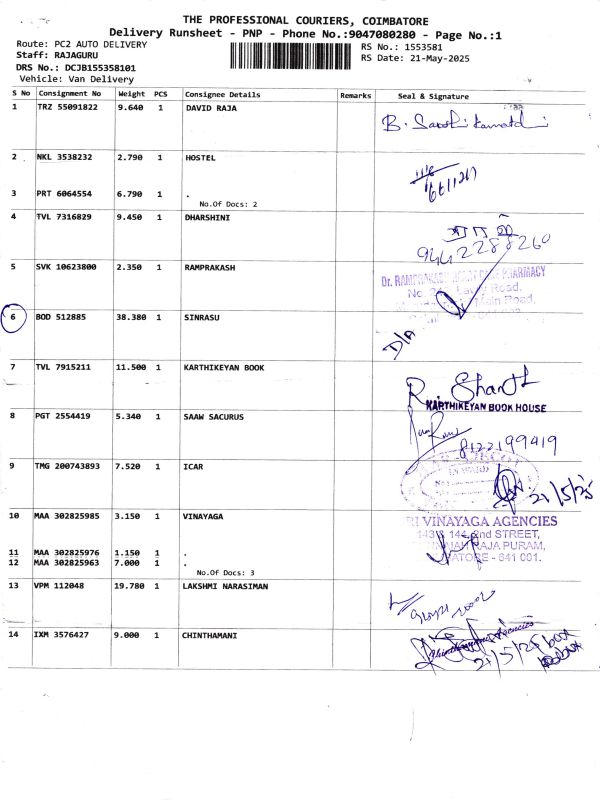 THE PROFESSIONAL COURIERS, COIMBATORE
Delivery Runsheet - PNP - Phone No.:9047080280 - Page No.:1
Route: PC2 AUTO DELIVERY
Staff: RAJAGURU
DRS No.: DCJB155358101
Vehicle: Van Delivery
RS No.: 1553581
RS Date: 21-May-2025
S No Consignment No Weight PCS Consignee Details Remarks Seal & Signature
1 TRZ 55091822 9.640 1 DAVID RAJA
2 NKL 3538232 2.790 1 HOSTEL
3 PRT 6064554 6.790 1 .
No.Of Docs: 2
4 TVL 7316829 9.450 1 DHARSHINI
9442288260
5 SVK 10623800 2.350 1 RAMPRAKASH
Dr. RAMPRAKASH PHARMACY
Road,
Main Road,
6 BOD 512885 38.380 1 SINRASU
D/A
7 TVL 7915211 11.500 1 KARTHIKEYAN BOOK
KARTHIKEYAN BOOK HOUSE
8 PGT 2554419 5.340 1 SAAW SACURUS
8122199419
9 TMG 200743893 7.520 1 ICAR
21/5/25
10 MAA 302825985 3.150 1 VINAYAGA
VINAYAGA AGENCIES
2nd STREET,
RAJA PURAM,
641 001.
11 MAA 302825976 1.150 1 .
12 MAA 302825963 7.000 1 .
No.Of Docs: 3
13 VPM 112048 19.780 1 LAKSHMI NARASIMAN
14 IXM 3576427 9.000 1 CHINTHAMANI
21/5/25 box